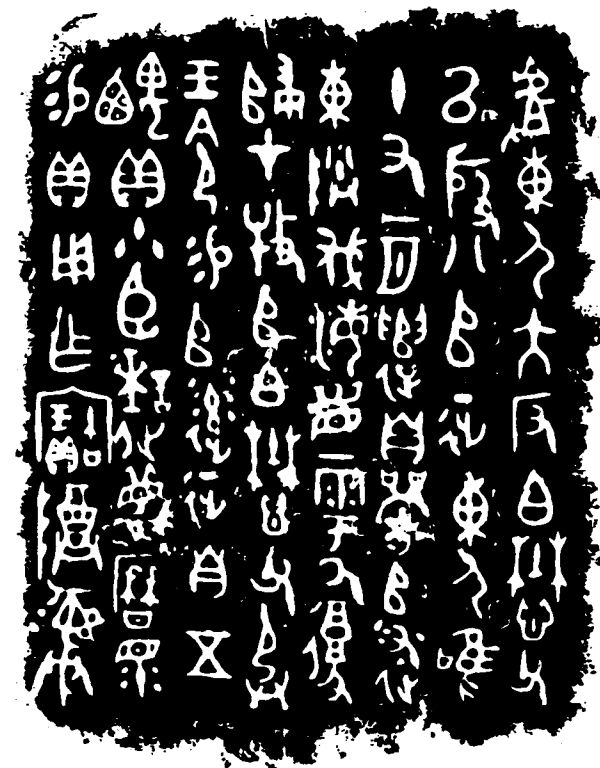 䖒東尸大反白懋父
㠯殷八𠂤征東尸唯
十又一月遣自𩫖𠂤述
東伐海眉雩氒復
歸才牧𠂤白懋父承
王令易𠂤率征自五
齵貝小臣謎蔑曆眔
易貝用乍寶尊彝